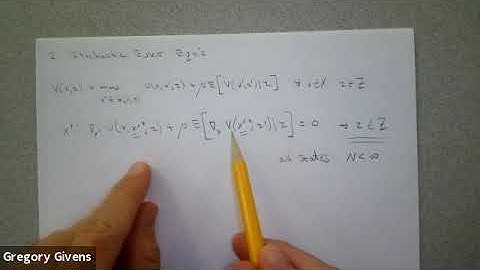 2 Stochastic Euler Eqn's
V(x,z) = max u(x,x',z) + ρ E[V(x',z')|z] ∀ x∈X z∈Z
x': D u(x,x'*,z) + ρ E[D V(x'*,z')|z] = 0 ∀ z∈Z
all states N<∞
Gregory Givens